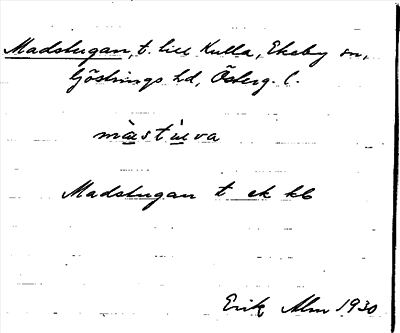 Madstugan, t. till Kulla, Ekeby sn,
Göstrings hd, Österg. l.
mastuva
Madstugan t ek kb
Erik Alm 1930